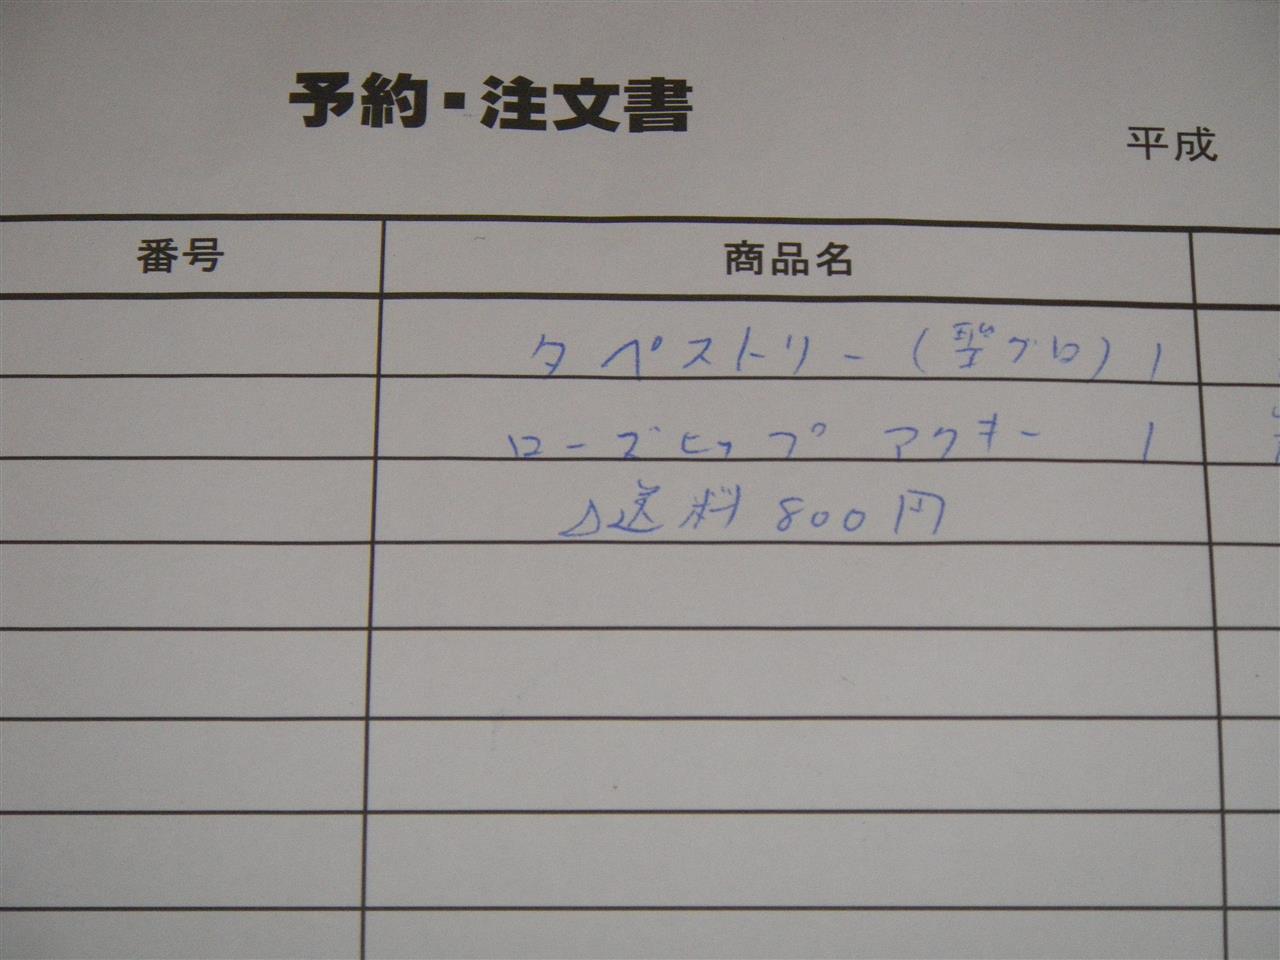 予約・注文書
平成
番号 商品名
タペストリー(聖グロ) 1
ローズヒップ アクキー 1
△送料 800円